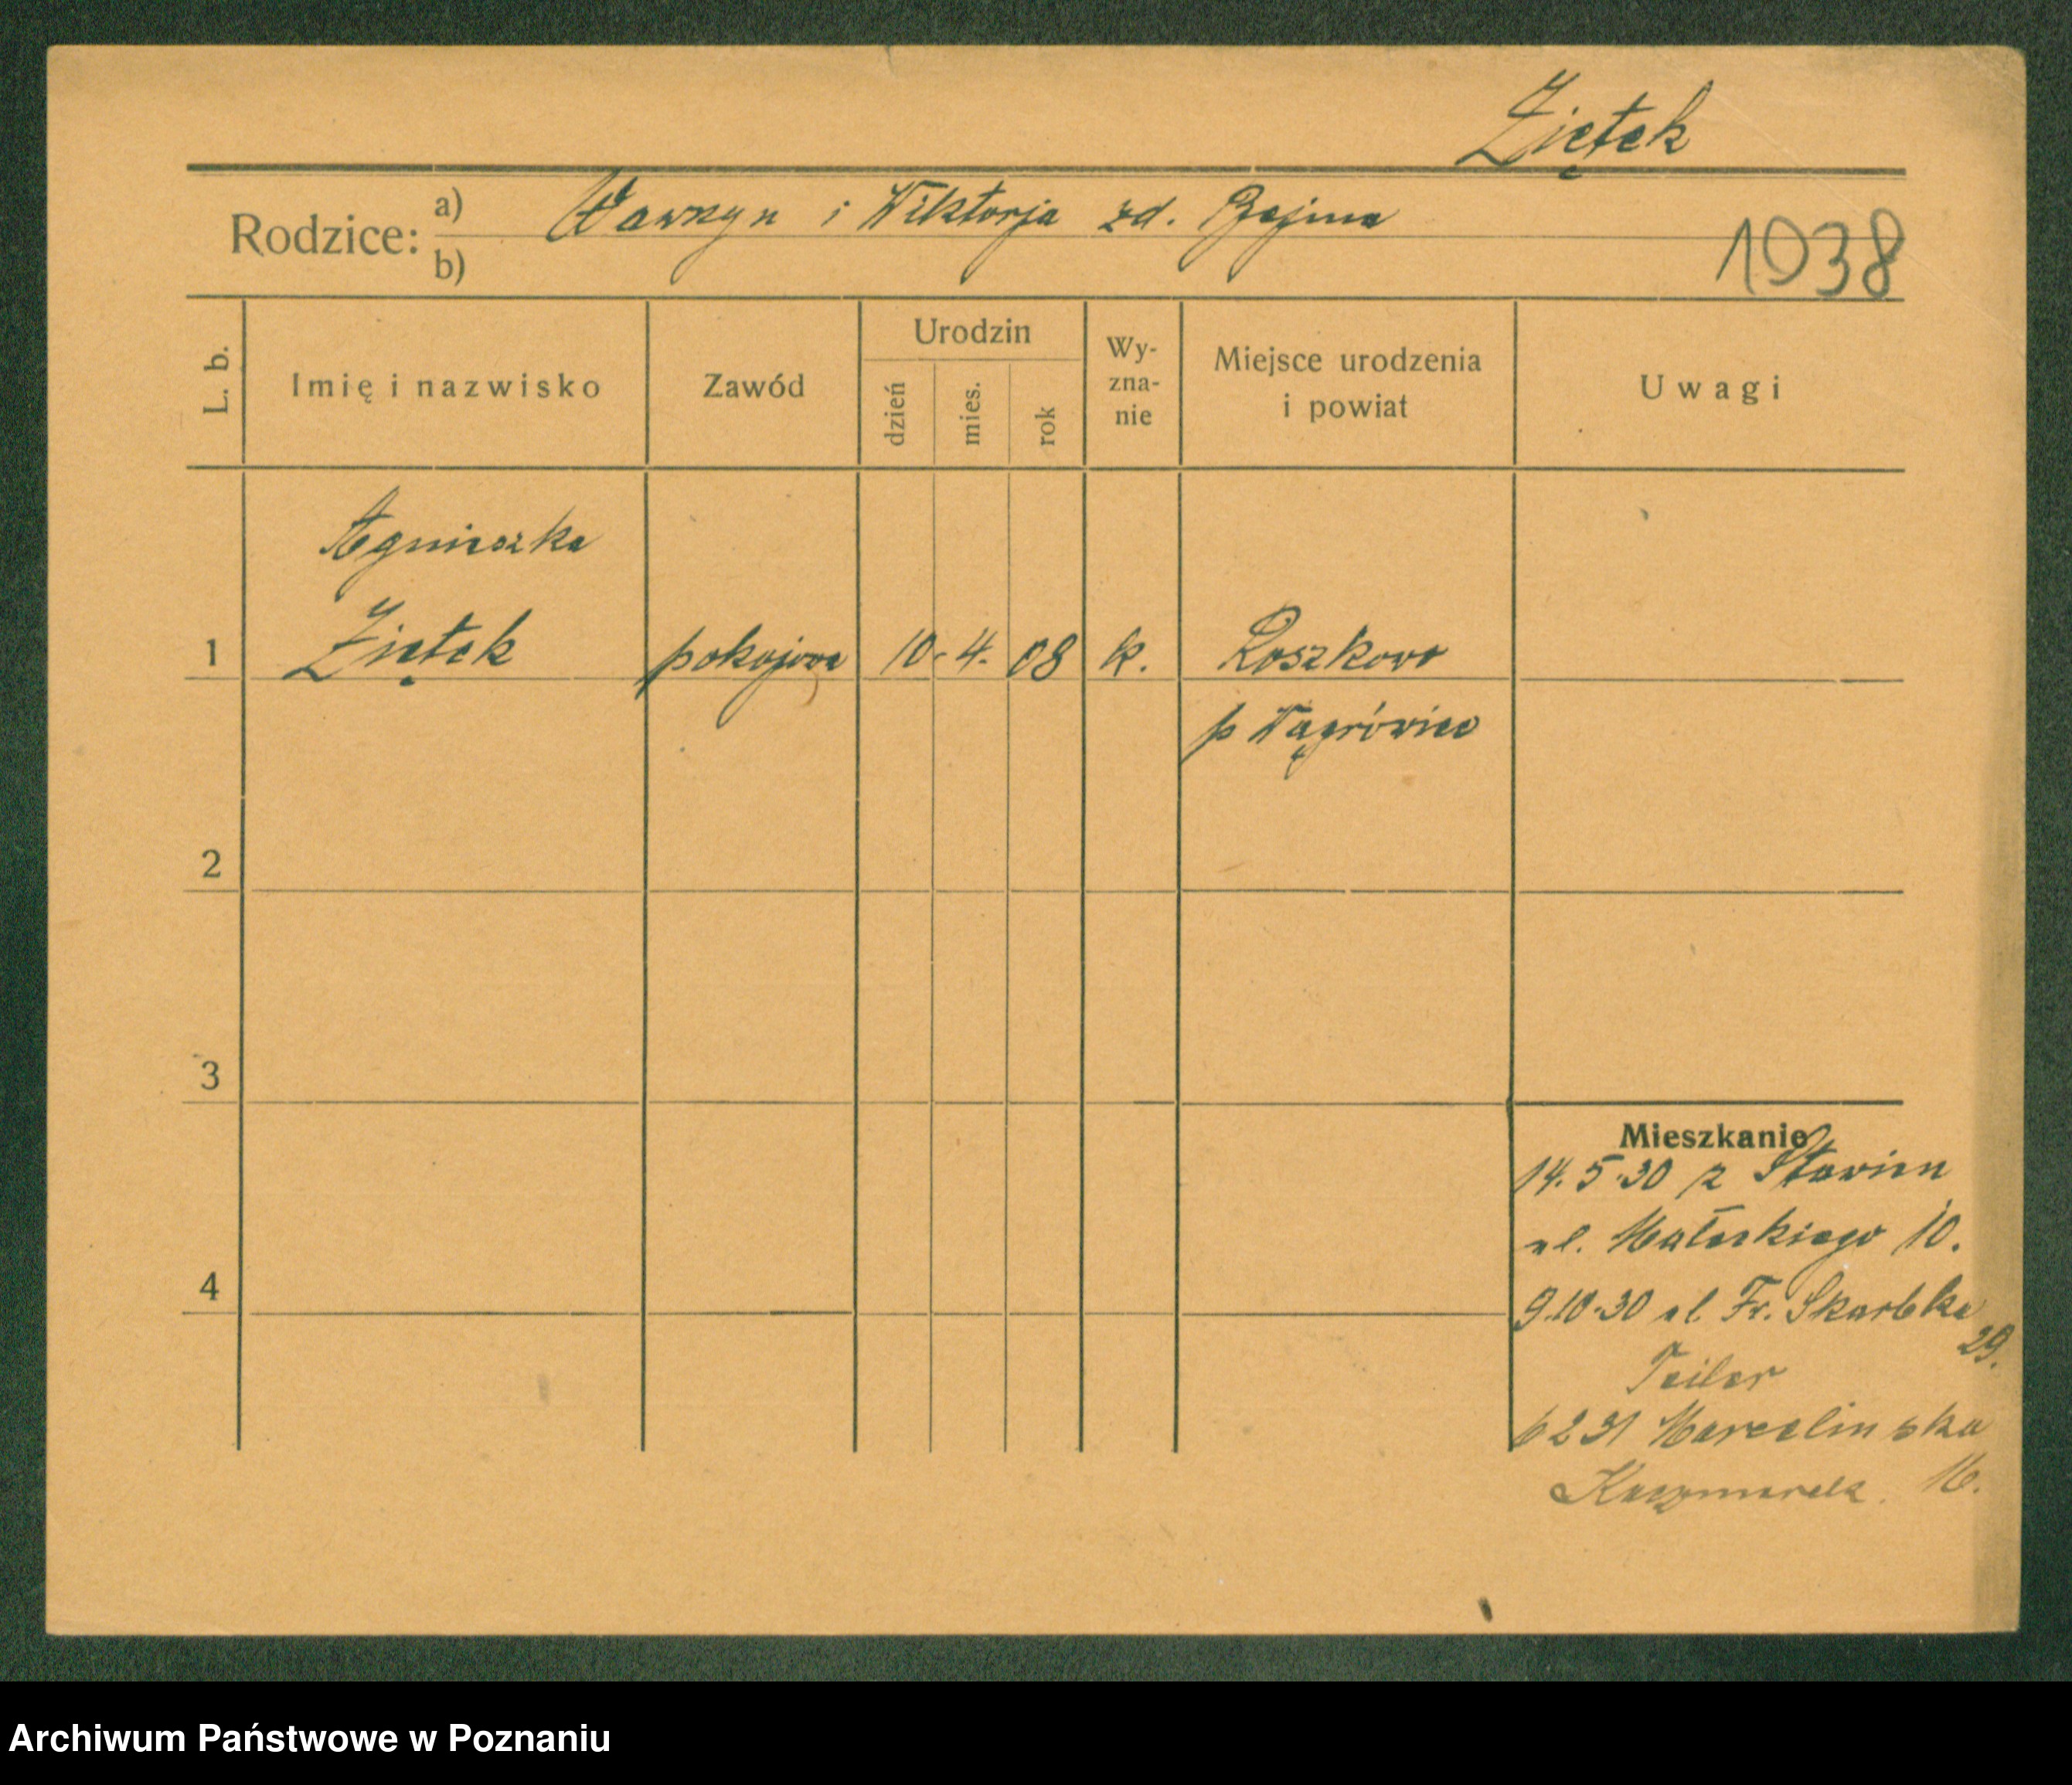 Ziętek
Rodzice: a) Wawrzyn i Wiktorja zd. Bejma
b)
1938
L. b.
Imię i nazwisko
Zawód
Urodzin
dzień
mies.
rok
Wy-
zna-
nie
Miejsce urodzenia
i powiat
Uwagi
Agnieszka
1 Ziętek pokojowa 10. 4. 08 k. Roszkowo
p Wągrówiec
2
3
4
Mieszkanie
14.5.30 z Stawien
ul. Małeckiego 10.
9.10.30 ul. Fr. Skarbka
29.
Teiler
6 2 31 Marcelinska
Kaczmarek. 16.
Archiwum Państwowe w Poznaniu